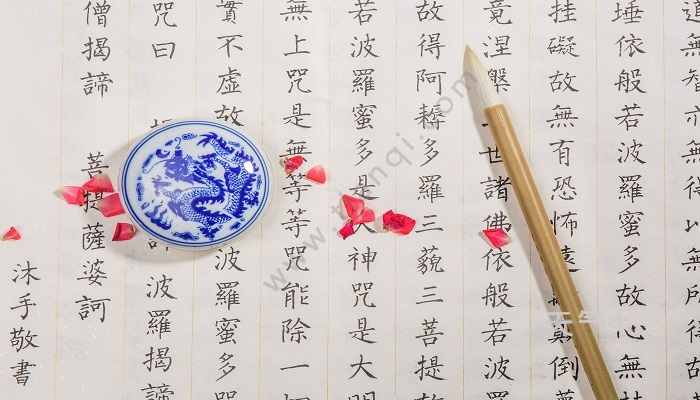 道無智亦無得以無所得
埵依般若波羅蜜多故心無
挂礙故無有恐怖遠顛倒夢
竟涅槃世諸佛依般若波羅
故得阿耨多羅三藐三菩提故
若波羅蜜多是大神咒是大明
無上咒是無等等咒能除一
實不虛故波羅蜜多咒
咒曰波羅揭諦
僧揭諦 菩提薩婆訶
沐手敬書
www.tianqi.com